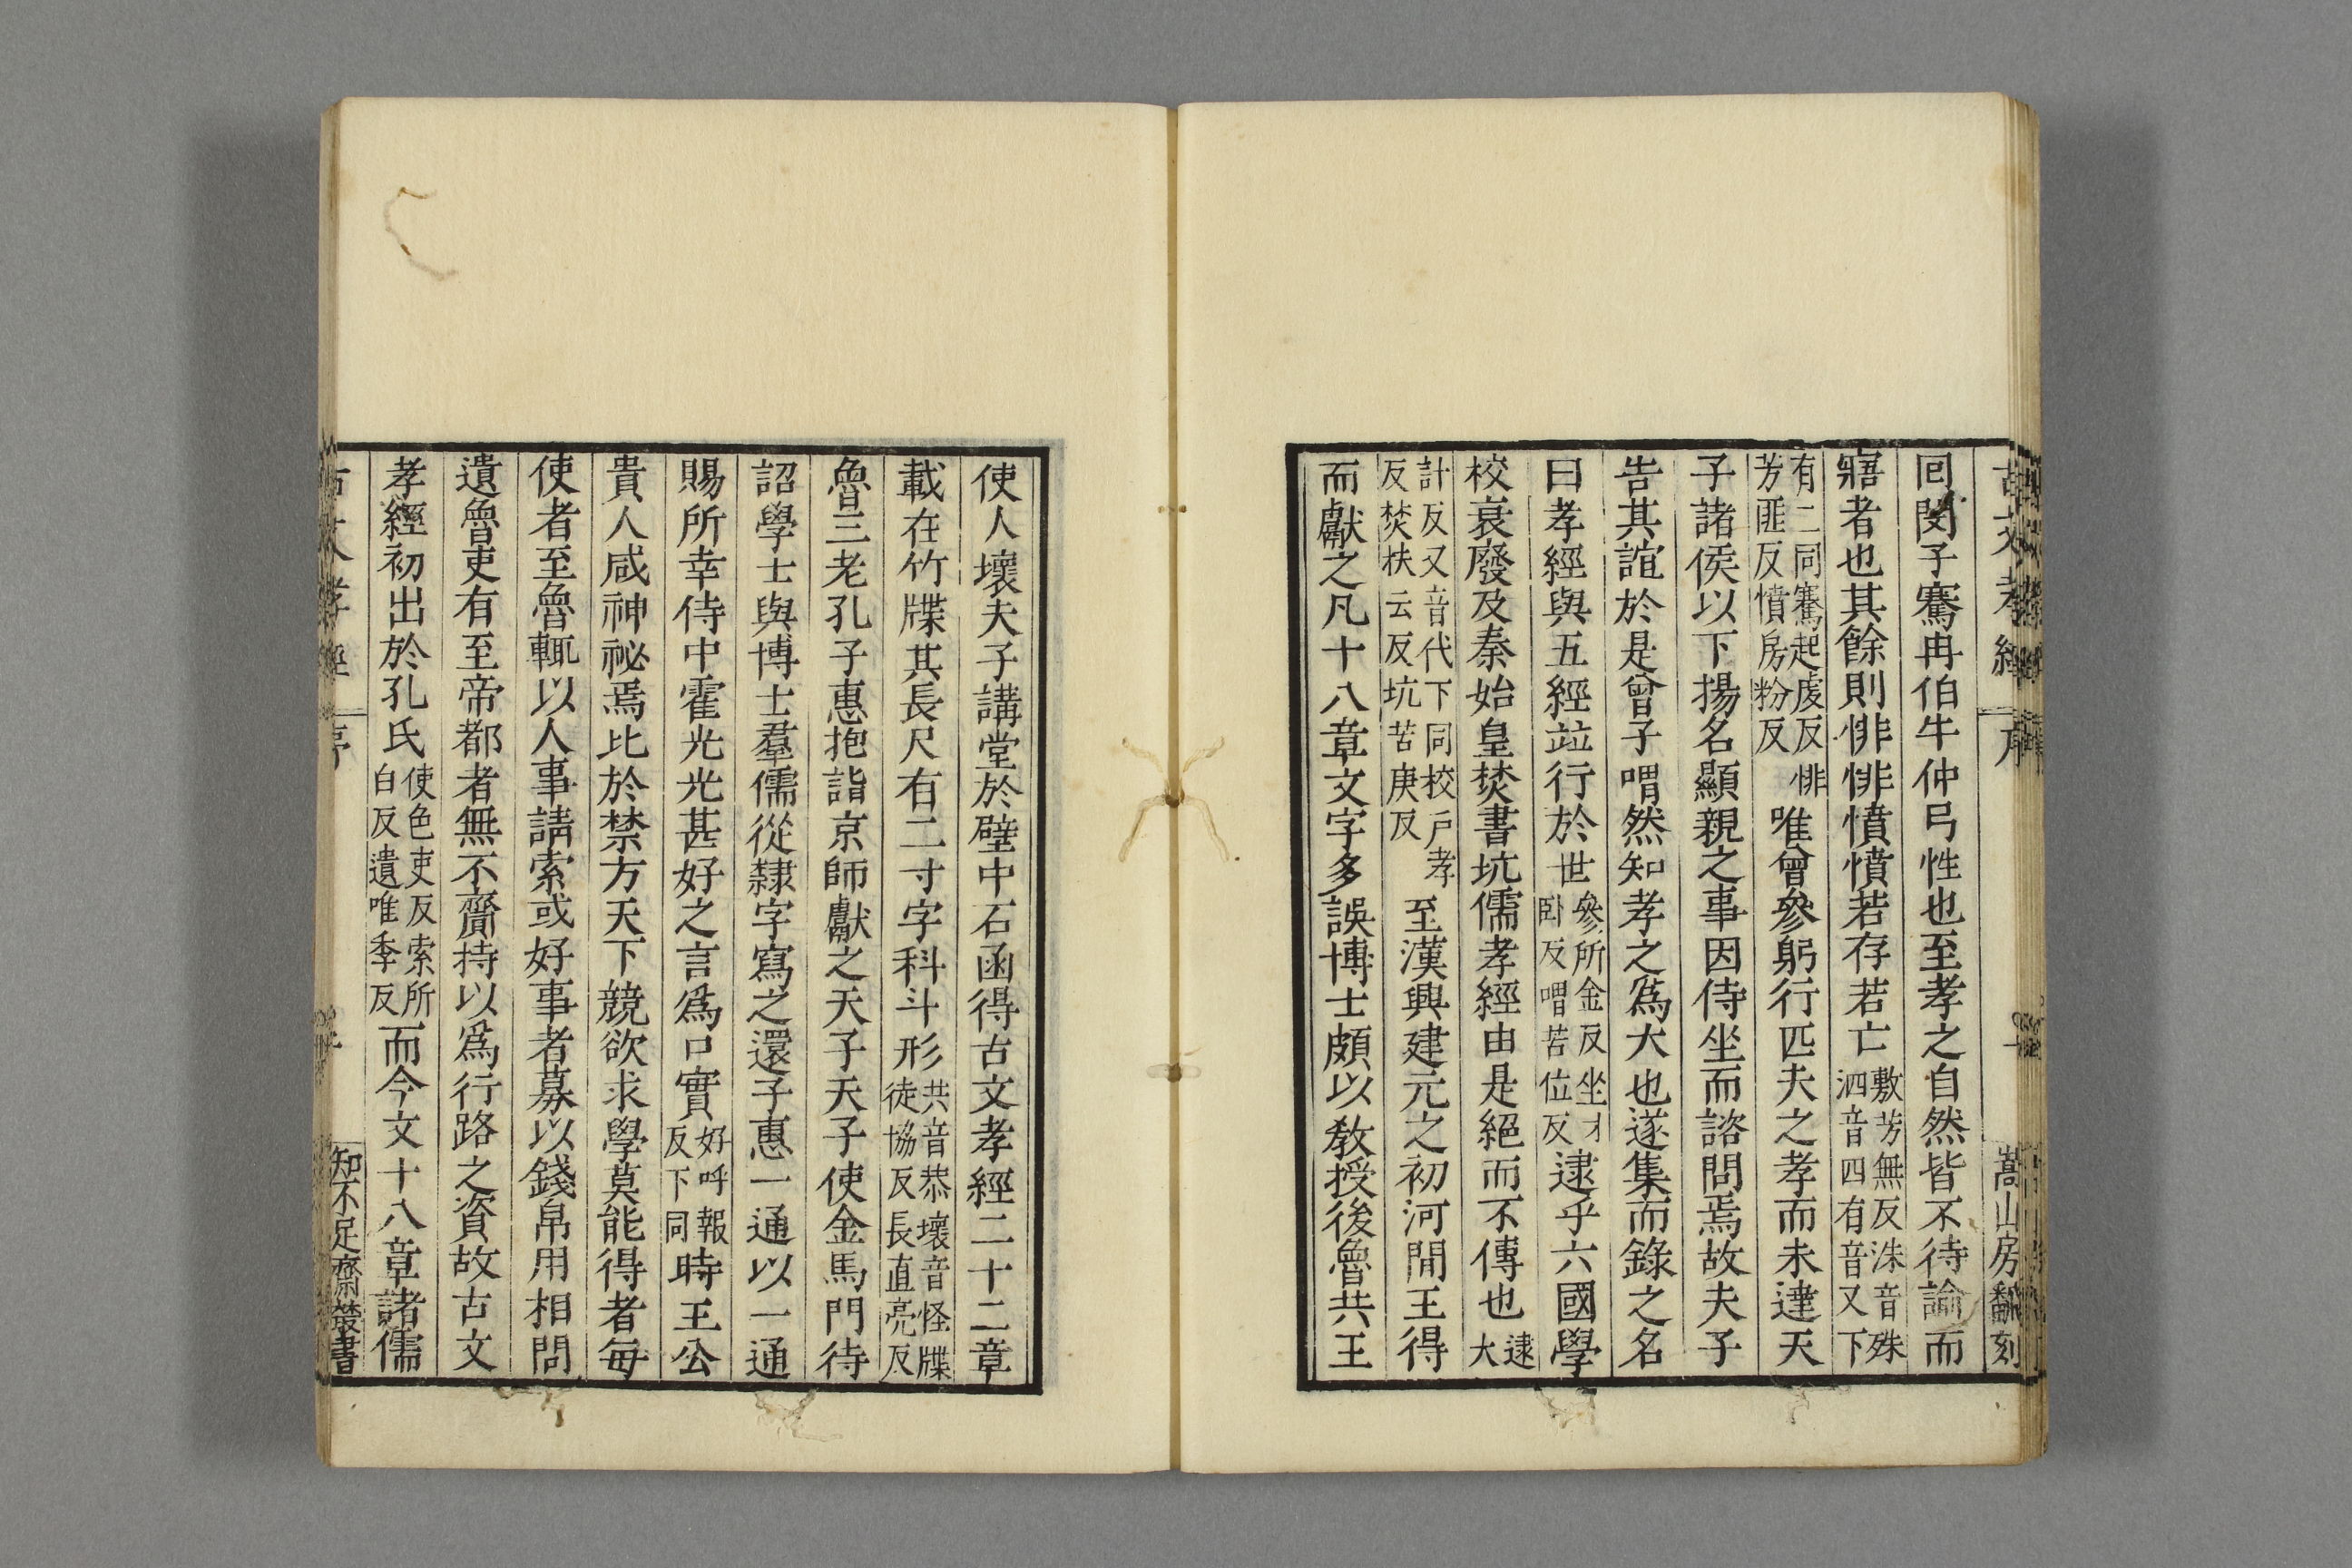 古文孝經 序 嵩山房翻刻
回閔子騫冉伯牛仲弓性也至孝之自然皆不待諭而
寤者也其餘則悱悱憤憤若存若亡敷芳無反洙音殊泗音四有音又下
有二同騫起虔反悱芳匪反憤房粉反唯曾參躬行匹夫之孝而未達天
子諸侯以下揚名顯親之事因侍坐而諮問焉故夫子
告其誼於是曾子喟然知孝之爲大也遂集而錄之名
曰孝經與五經竝行於世參所金反坐才卧反喟苦位反逮乎六國學
校衰廢及秦始皇焚書坑儒孝經由是絕而不傳也逮大
計反又音代下同校戸孝反焚扶云反坑苦庚反至漢興建元之初河閒王得
而獻之凡十八章文字多誤博士頗以敎授後魯共王
使人壞夫子講堂於壁中石函得古文孝經二十二章
載在竹牒其長尺有二寸字科斗形共音恭壞音怪牒徒協反長直亮反
魯三老孔子惠抱詣京師獻之天子天子使金馬門待
詔學士與博士羣儒從隸字寫之還子惠一通以一通
賜所幸侍中霍光光甚好之言爲口實好呼報反下同時王公
貴人咸神祕焉比於禁方天下競欲求學莫能得者每
使者至魯輒以人事請索或好事者募以錢帛用相問
遺魯吏有至帝都者無不齎持以爲行路之資故古文
孝經初出於孔氏使色吏反索所白反遺唯季反而今文十八章諸儒
古文孝經 序 知不足齋叢書